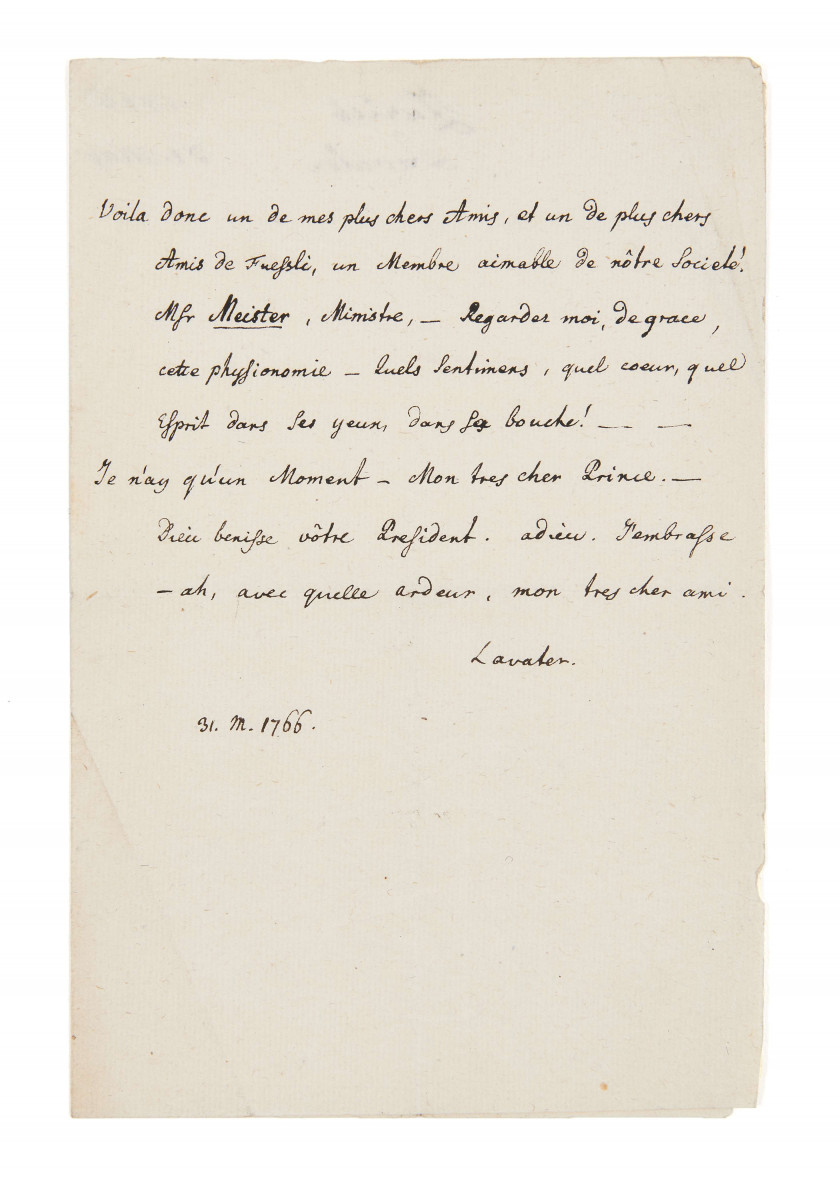 Voila donc un de mes plus chers Amis, et un de plus chers
Amis de Fuessli, un Membre aimable de nôtre Societé!
Msr Meister, Ministre, — Regardez moi, de grace,
cette physionomie — Quels Sentimens, quel coeur, quel
Esprit dans ses yeux, dans sa bouche! — —
Je n'ay qu'un Moment — Mon tres cher Prince. —
Dieu benisse vôtre President. adieu. J'embrasse
— ah, avec quelle ardeur, mon tres cher ami.
Lavater.
31. M. 1766.